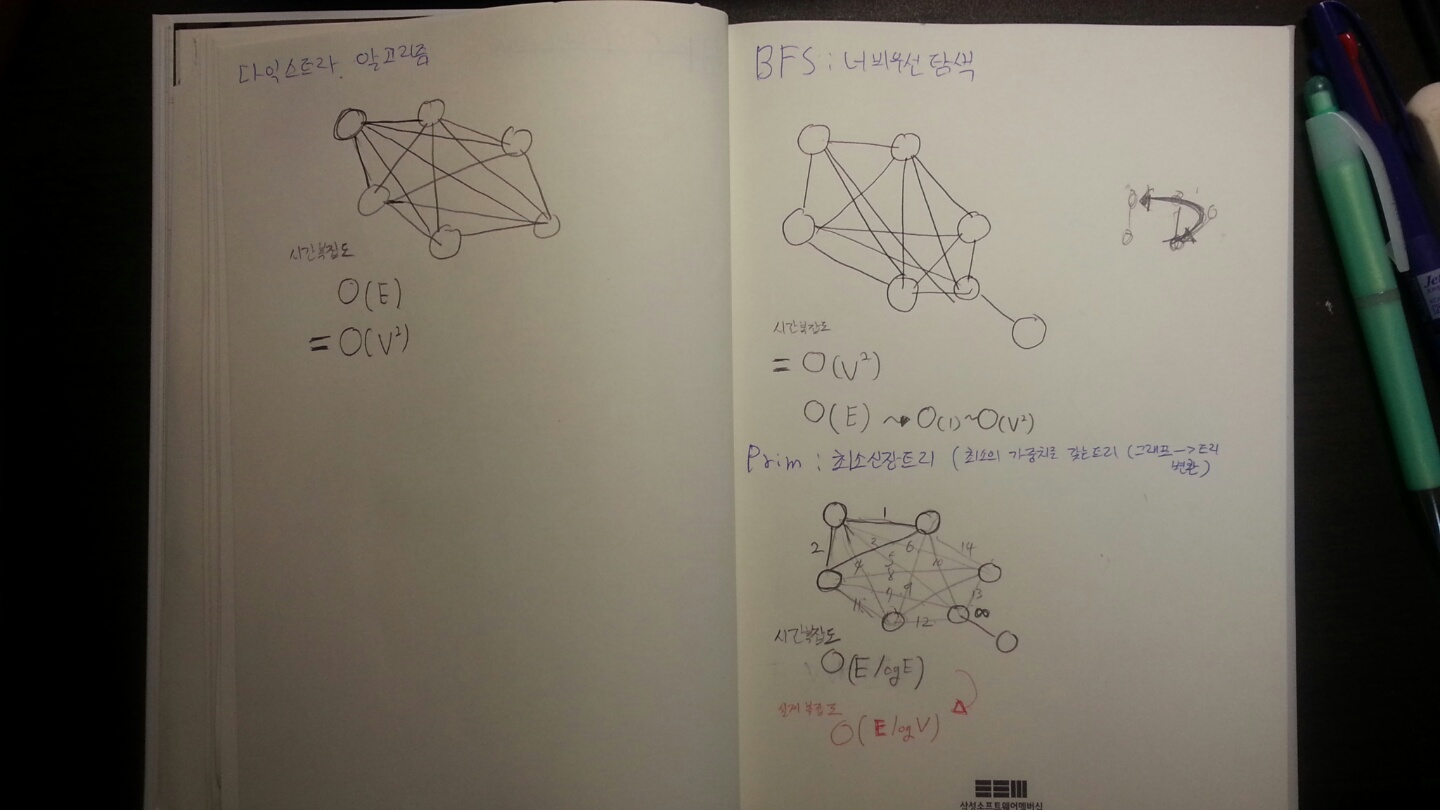 다익스트라 알고리즘
시간복잡도
O(E)
= O(V²)
BFS : 너비우선탐색
시간복잡도
= O(V²)
O(E) ~ O(1)~O(V²)
Prim : 최소신장트리 (최소의 가중치로 갖는트리 (그래프 -> 트리
변환)
1
2
2
6
14
4
5
10
8
7
9
13
11
12
∞
시간복잡도
O(E log E)
실제복잡도
O(E log V)
삼성소프트웨어멤버십